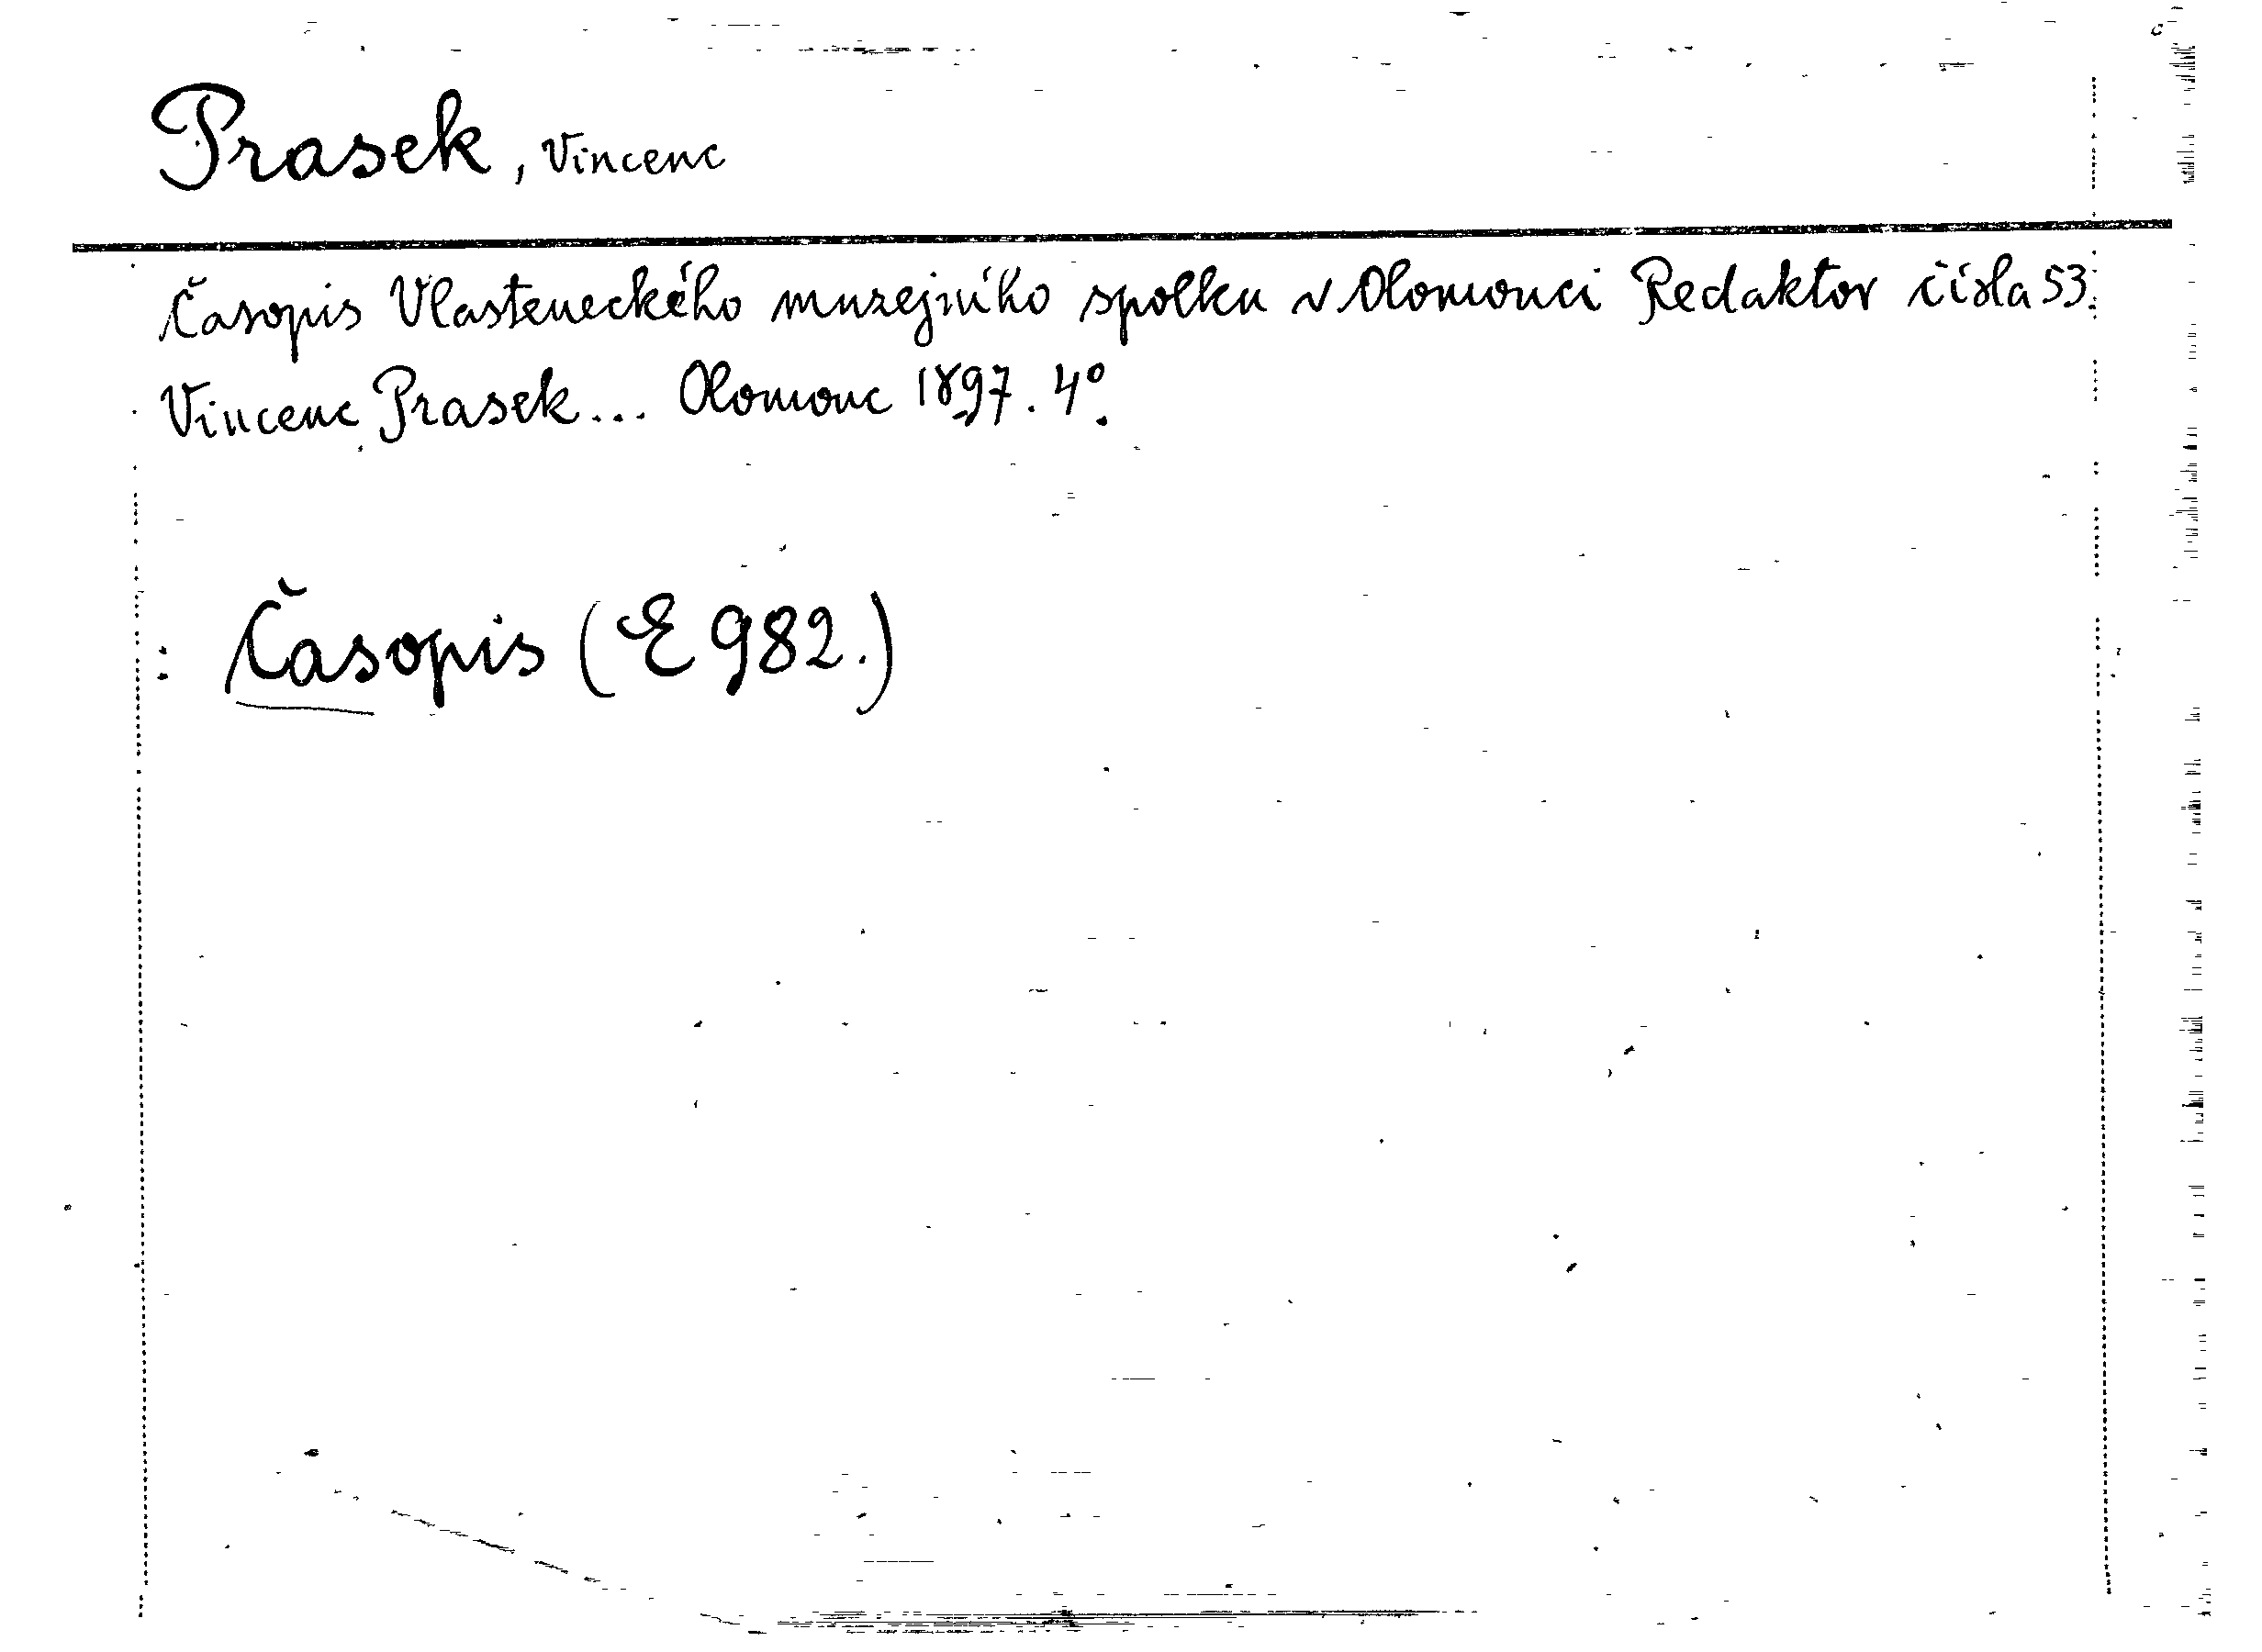 Prasek, Vincenc
Časopis Vlasteneckého musejního spolku v Olomouci Redaktor čísla 53.
Vincenc Prasek... Olomouc 1897. 4°.
: Časopis (E 982.)